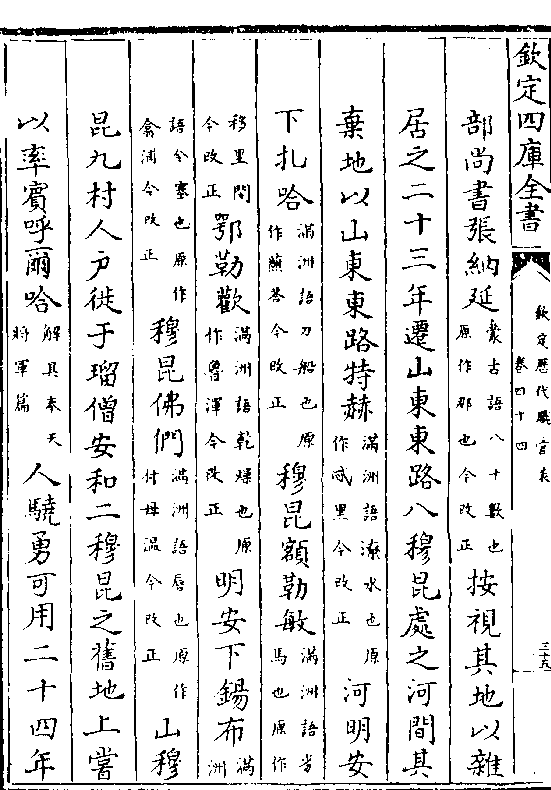 欽定四庫全書
欽定歷代職官表
卷四十四
三十九
部尚書張納延蒙古語八十數也原作那也今改正按視其地以雜
居之二十三年遷山東東路八穆昆處之河間其
棄地以山東東路特赫滿洲語潦水也原作忒里今改正河明安
下扎哈滿洲語刀船也原作瞻荅今改正穆昆額勒敏滿洲語馬也原作
移里閔今改正鄂勒歡滿洲語乾燥也原作魯渾今改正明安下錫布滿洲
語今塞也原作翕浦今改正穆昆佛們滿洲語唇也原作付母温今改正山穆
昆九村人户徙于瑠僧安和二穆昆之舊地上嘗
以率賓呼爾哈解具奉天將軍篇人驍勇可用二十四年